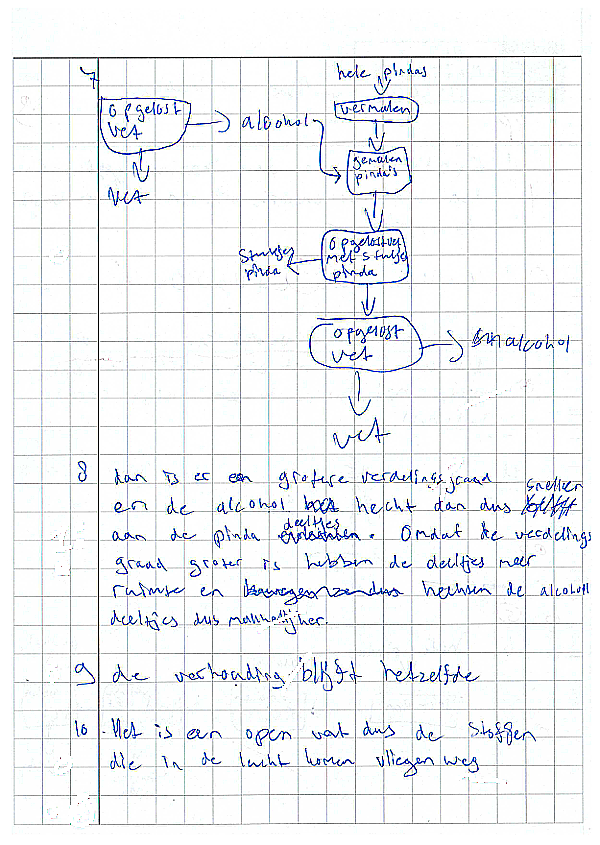 7
hele pindas
vermalen
opgelost
vet
alcohol
vet
gemalen
pinda's
opgelost vet
met stukje
pinda
Stukjes
pinda
opgelost
vet
alcohol
vet
8 dan is er een grotere verdelingsgraad
en de alcohol hecht dan dus sneller
aan de pinda deeltjes. Omdat de verdelings
graad groter is hebben de deeltjes meer
ruimte en hechten de alcohol
deeltjes dus
9 de verhouding blijft hetzelfde
10 . Het is een open vat dus de stoffen
die in de lucht komen vliegen weg